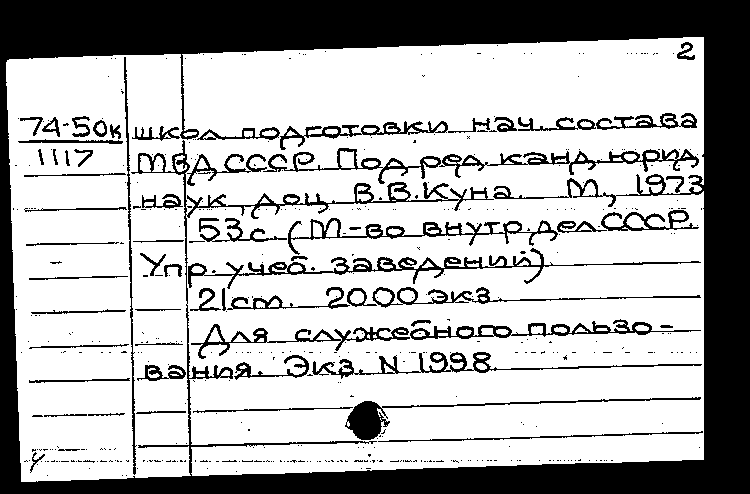 2
74-50к школ подготовки нач. состава
1117 МВД СССР. Под ред. канд. юрид.
наук, доц. В.В.Куна. М., 1973
53с. (М-во внутр. дел СССР.
Упр. учеб. заведений)
21cm. 2000 экз.
Для служебного пользо-
вания. Экз. N 1998.